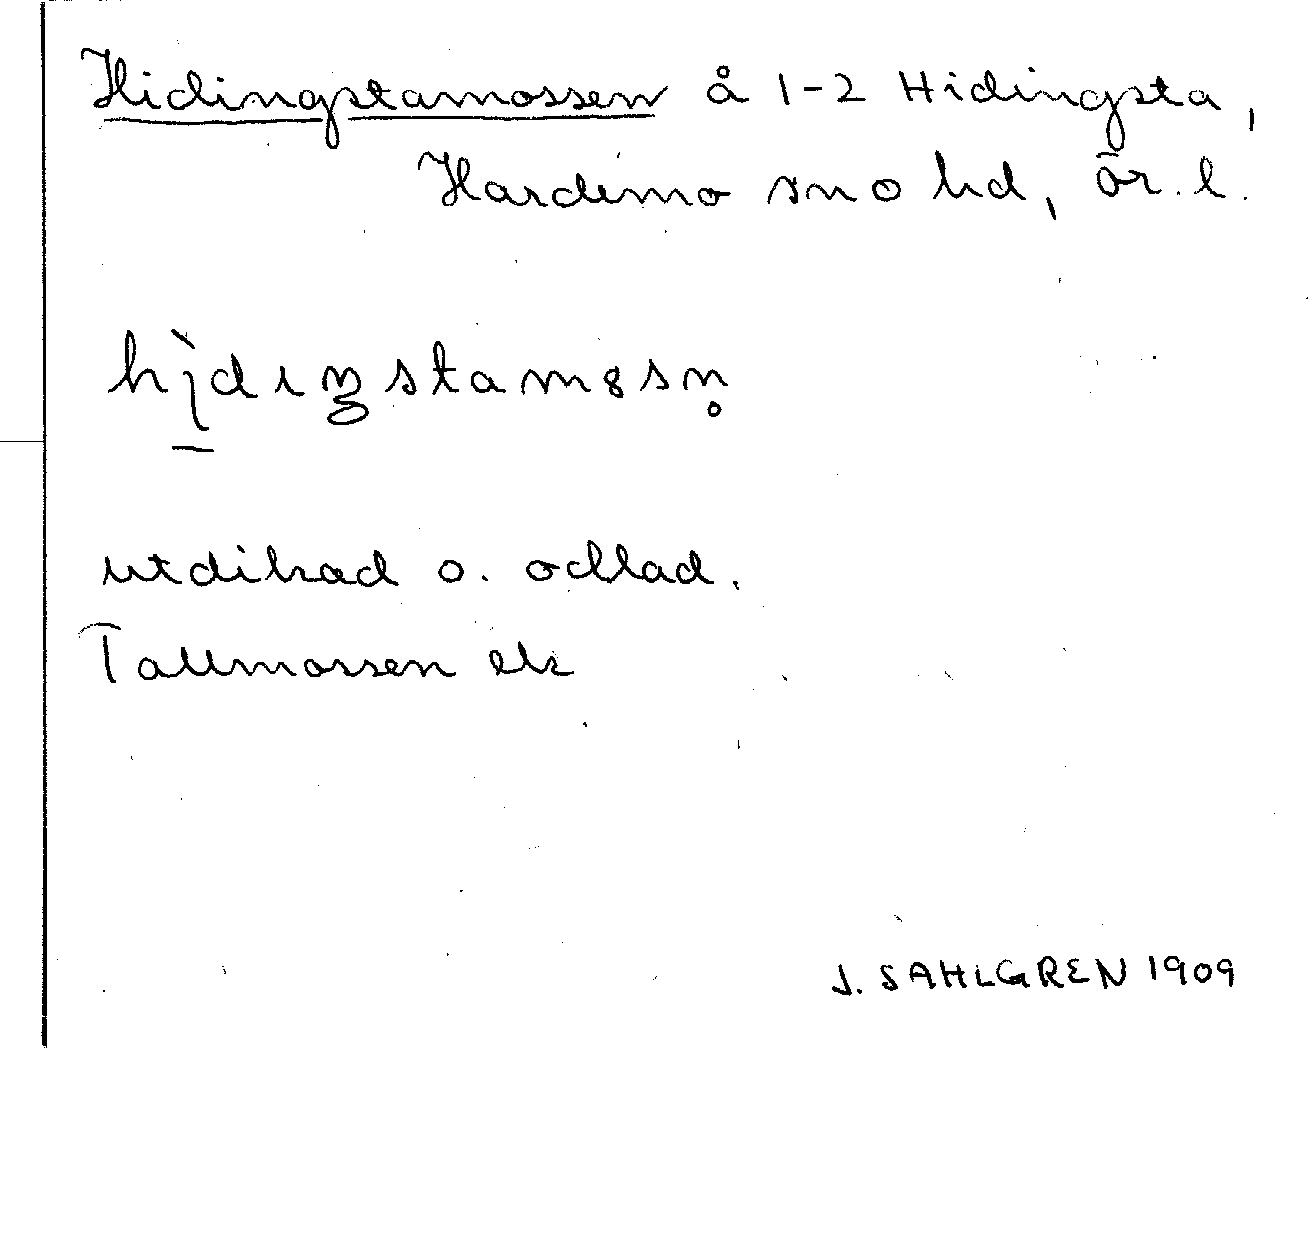 Hidingstamossen å 1-2 Hidingsta,
Hardemo sn o hd, ör. l.
utdikad o. odlad.
Tallmossen ek
J. SAHLGREN 1909